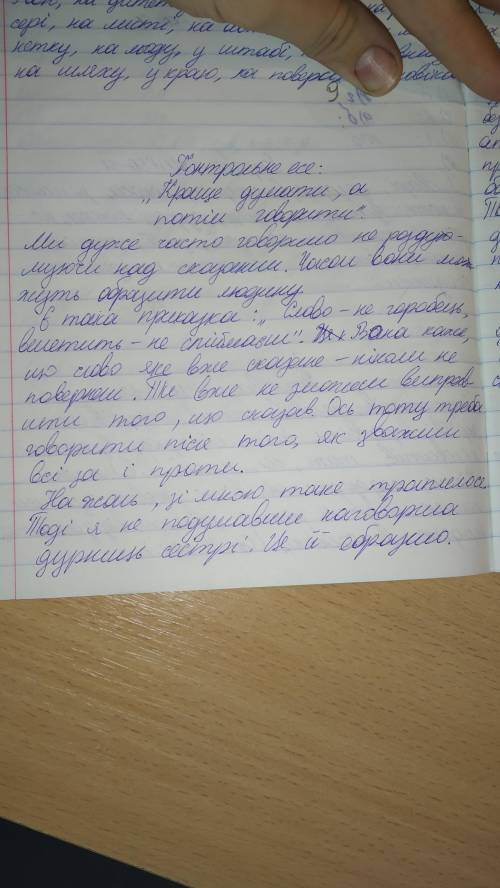 сері, на листі, на
нетку, на моду, у штабі,
на шляху, у краю, на
9
Контрольне есе:
„Краще думати, а
потім говорити".
Ми дуже часто говоримо не розду-
муючи над сказаним. Часом вони мо-
жуть образити людину.
Є така приказка: „Слово - не горобець,
вилетить - не спіймаєш". Вона каже,
що слово яке вже сказане - ніколи не
повернеш. Ти вже не зможеш виправ-
ити того, що сказав. Ось тому треба
говорити після того, як зважили
всі за і проти.
На жаль, зі мною таке траплялося.
Тоді я не подумавши наговорила
дурниць сестрі. Це її образило.